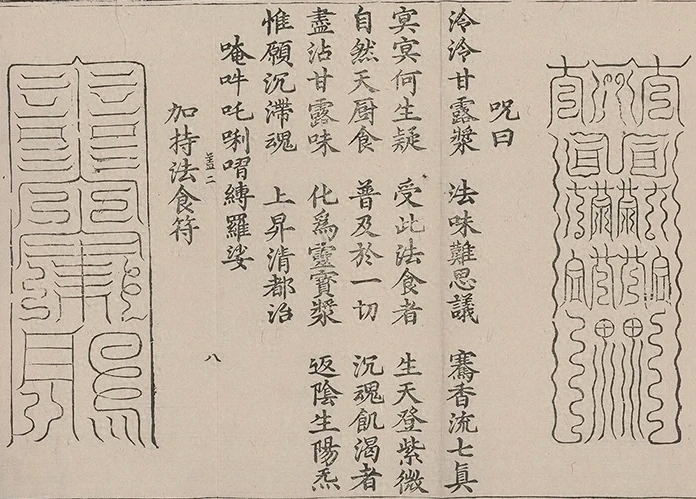 咒曰
泠泠甘露漿 法味難思議 騫香流七真
冥冥何生疑 受此法食者 生天登紫微
自然天厨食 普及於一切 沉魂飢渴者
盡沾甘露味 化為靈寶漿 返陰生陽炁
惟願沉滯魂 上昇清都治
唵吽吒唎㗩縛羅娑
蓋二 八
加持法食符